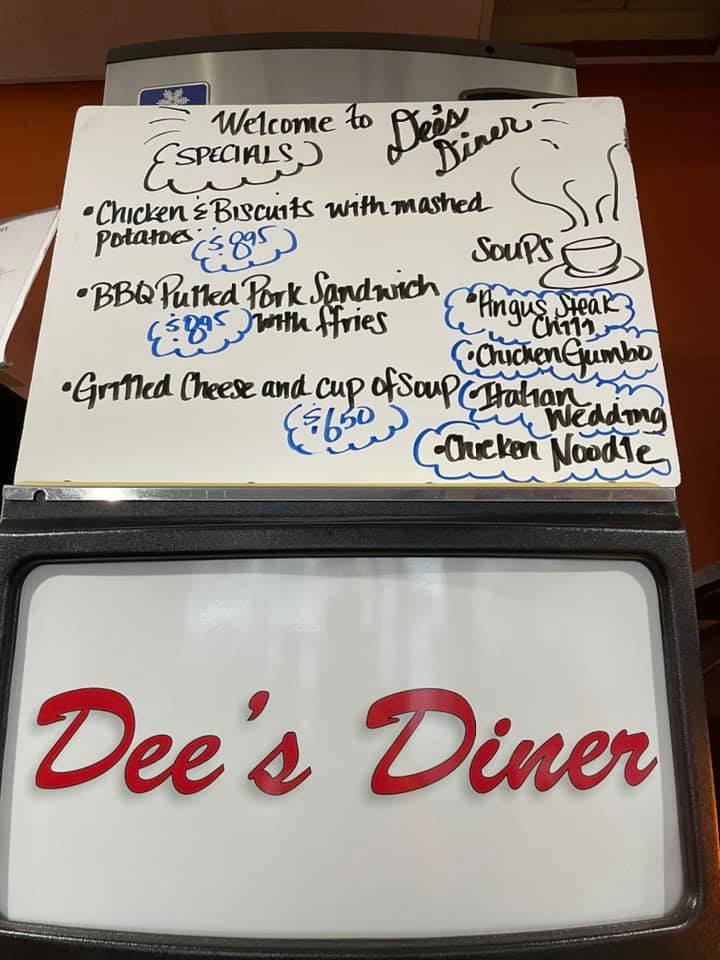 Welcome to Dee's Diner
SPECIALS
• Chicken & Biscuits with mashed
potatoes $8.95
• BBQ Pulled Pork Sandwich
$8.95 with ffries
• Grilled Cheese and cup of Soup
$6.50
Soups
• Angus Steak
Chili
• Chicken Gumbo
• Italian
Wedding
• Chicken Noodle
Dee's Diner